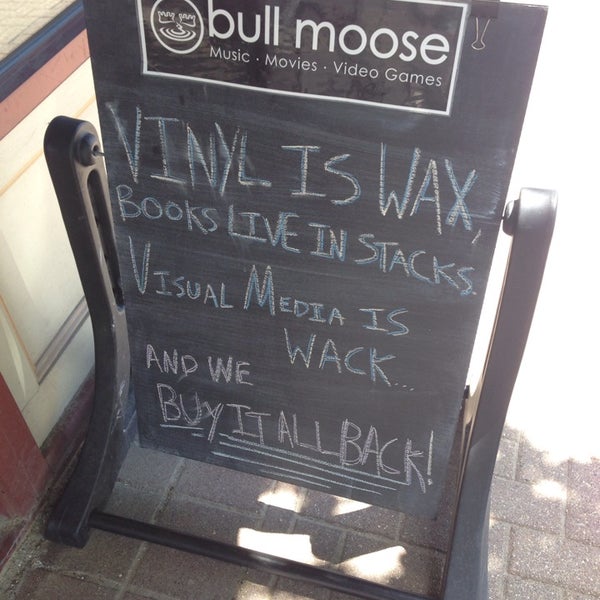 bull moose
Music · Movies · Video Games
VINYL IS WAX,
BOOKS LIVE IN STACKS.
VISUAL MEDIA IS
WACK...
AND WE
BUY IT ALL BACK!